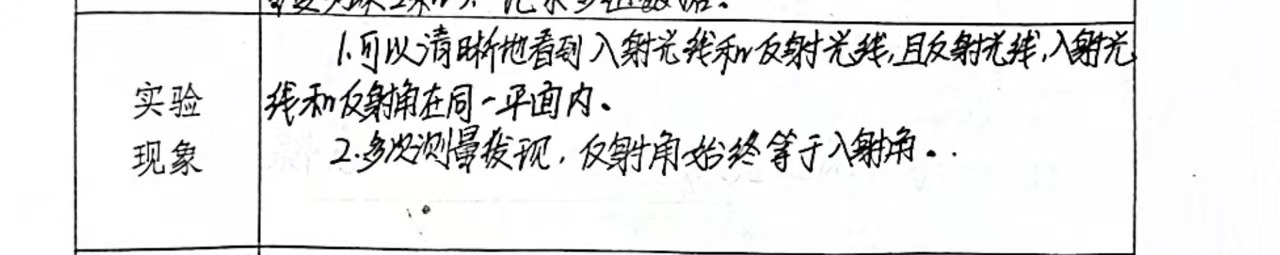 记录多组数据。
1.可以清晰地看到入射光线和反射光线,且反射光线,入射光
实验
线和反射角在同一平面内。
现象
2.多次测量发现,反射角始终等于入射角。